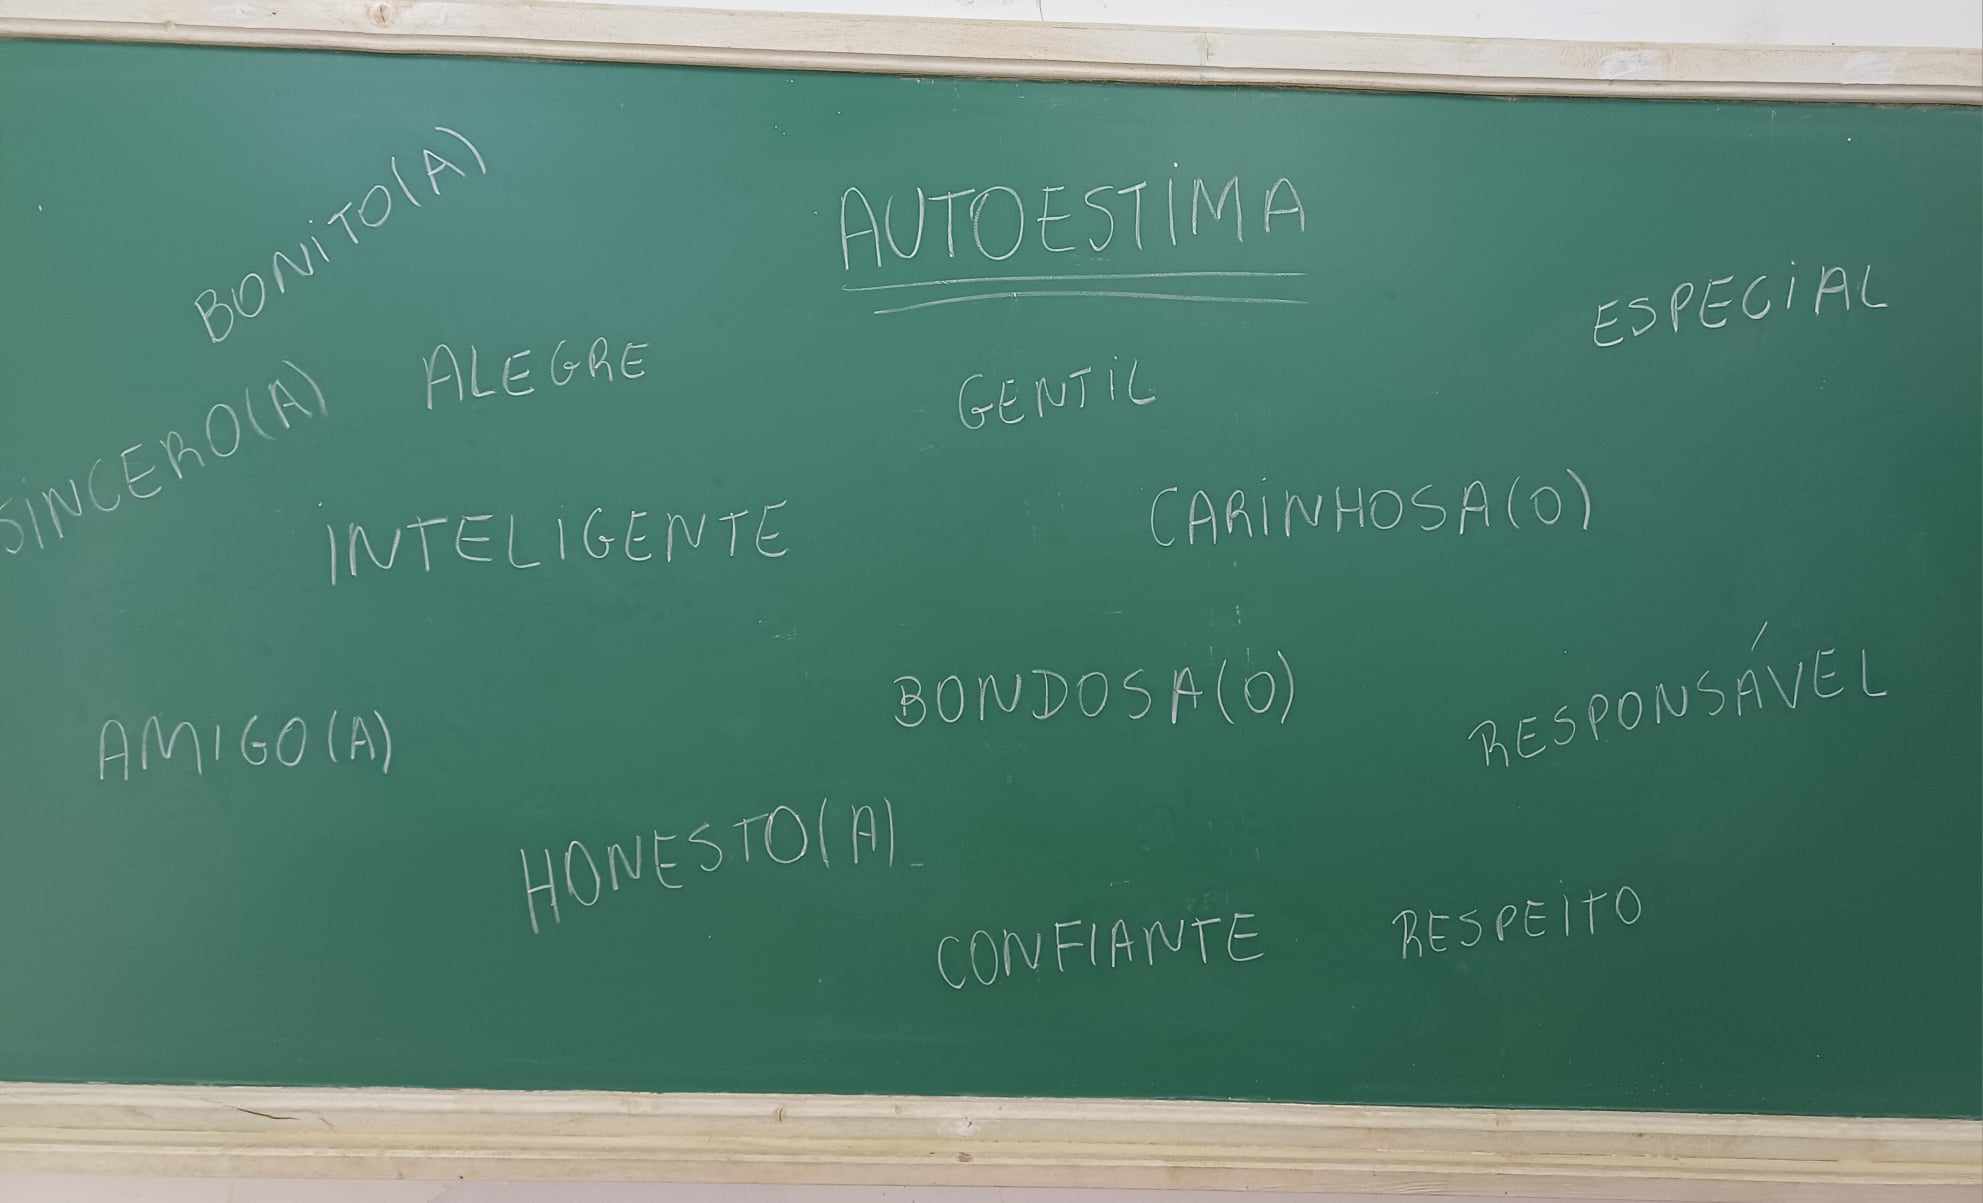 AUTOESTIMA
BONITO(A)
ESPECIAL
ALEGRE
GENTIL
SINCERO(A)
INTELIGENTE
CARINHOSA(O)
BONDOSA(O)
RESPONSÁVEL
AMIGO(A)
HONESTO(A)
CONFIANTE
RESPEITO